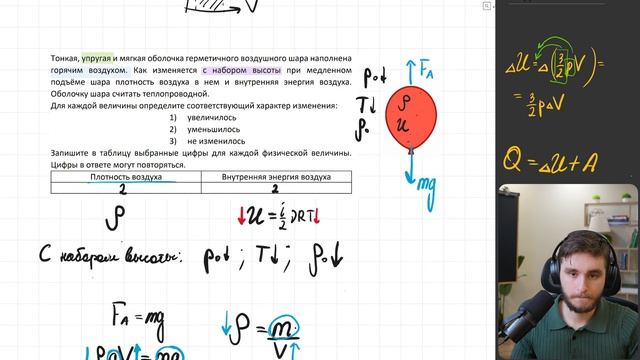 V
Тонкая, упругая и мягкая оболочка герметичного воздушного шара наполнена
горячим воздухом. Как изменяется с набором высоты при медленном
подъёме шара плотность воздуха в нем и внутренняя энергия воздуха.
Оболочку шара считать теплопроводной.
Для каждой величины определите соответствующий характер изменения:
1) увеличилось
2) уменьшилось
3) не изменилось
Запишите в таблицу выбранные цифры для каждой физической величины.
Цифры в ответе могут повторяться.
Плотность воздуха Внутренняя энергия воздуха
2 2
p₀↓
T↓
ρ₀
F_A
ρ
U
mg
ΔU = Δ(3/2 pV) =
= 3/2 pΔV
Q = ΔU + A
ρ ↓U = i/2 νRT↓
С набором высоты: p₀↓ ; T↓ ; ρ₀↓
F_A = mg
↓ρ = m/V↑